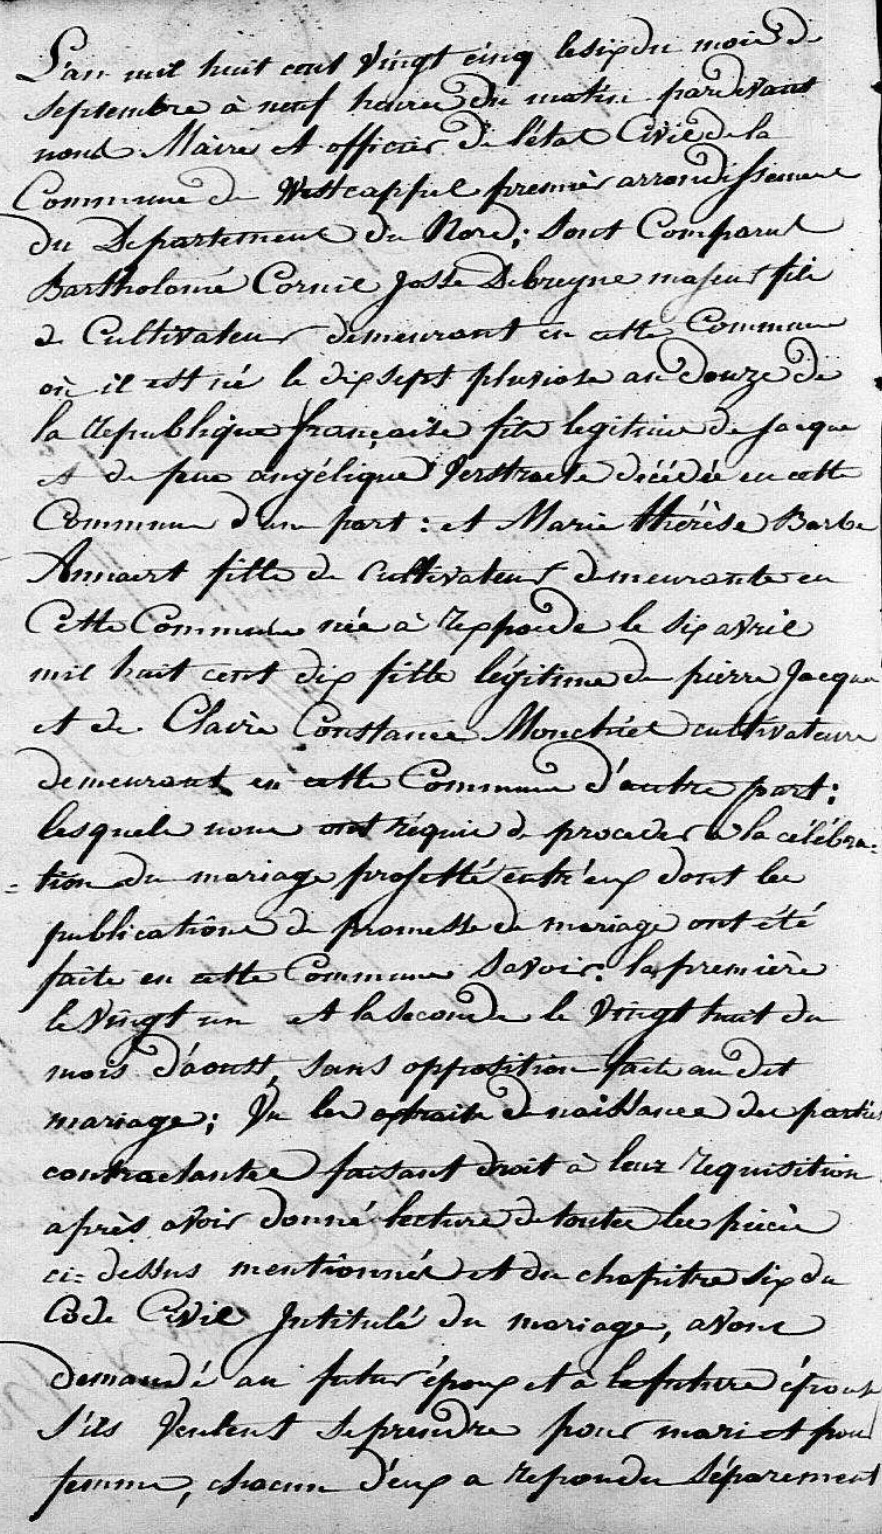 L'an mil huit cent vingt cinq le six du mois de
septembre à neuf heures du matin pardevant
nous Maire et officier de l'état Civil de la
Commune de Westcappel premier arrondissement
du Departement du Nord; sont Comparut
Bartholomé Cornil Josse Debreyne majeur fils
de Cultivateur demeurant en cette Commune
où il est né le dix sept pluviose an douze de
la République française fils legitime de Jacque
et de feue angélique Verstraete décédée en cette
Commune d'une part: et Marie thérèse Barbe
Annaert fille de Cultivateur demeurante en
Cette Commune née à rexpoede le six avril
mil huit cent dix fille légitime de pierre Jacque
et de Claire Constance cultivateurs
demeurant en cette Commune d'autre part:
lesquels nous ont réquis de proceder à la célébra=
=tion du mariage projetté entr'eux dont les
publications de promesse de mariage ont été
faite en cette Commune Savoir: la première
le vingt un et la seconde le vingt huit du
mois d'aoust, sans opposition faite au dit
mariage; Vu les extraits de naissance des parties
contractantes faisant droit à leur requisition
après avoir donné lecture de toutes les pièces
ci=dessus mentionnés et du chapitre six du
Code Civil Intitulé du mariage, avons
demandé au futur époux et à la future épouse
s'ils veulent se prendre pour mari et pour
femme, chacun d'eux a repondu séparement